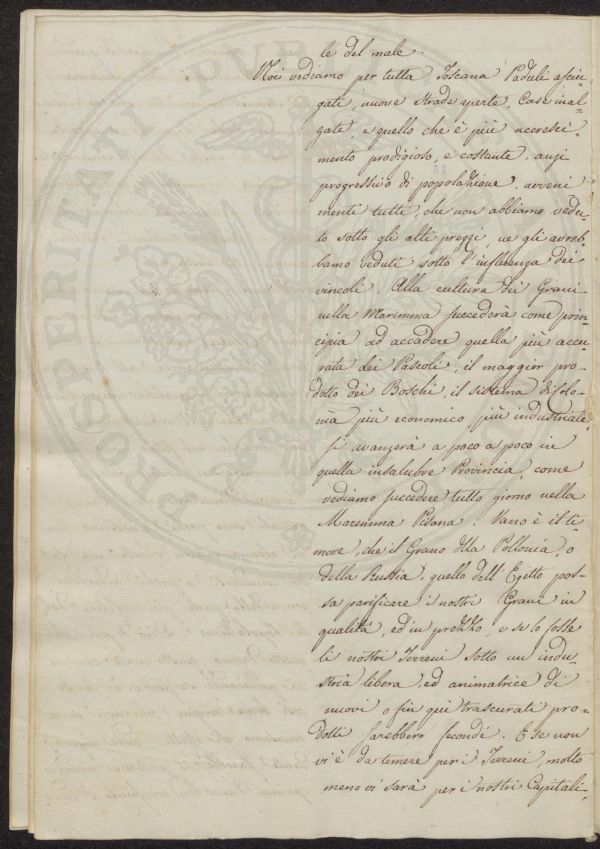 le del male.
Noi vediamo per tutta Toscana Paduli asciu-
gati, nuove strade aperte, Case inal-
zate, e quello che è più accresci-
mento prodigioso, e costante, anzi
progressivo di popolazione, avveni
menti tutti, che non abbiamo vedu-
to sotto gli alti prezzi, ne gli avreb-
bamo veduti sotto l'influenza dei
vincoli. Alla cultura dei Grani
nella Maremma succederà come prin-
cipia ad accadere quella più accu-
rata dei Pascoli, il maggior pro-
dotto dei Boschi, il sistema di Colo-
nia più economico più industriale,
si avanzerà a poco a poco in
quella insalubre Provincia, come
vediamo succedere tutto giorno nella
Maremma Pisana. Vano è il ti-
more, che il Grano della Pollonia, o
della Russia, quello dell'Egitto pos-
sa parificare i nostri Grani in
qualità, ed in prezzo, e se lo fosse
li nostri Terreni sotto un indu-
stria libera, ed animatrice di
nuovi o fin qui trascurati pro-
dotti sarebbero fecondi. E se non
vi è da temere per i Terreni, molto
meno vi sarà per i nostri Capitali-
PROSPERITATI PVBLICAE